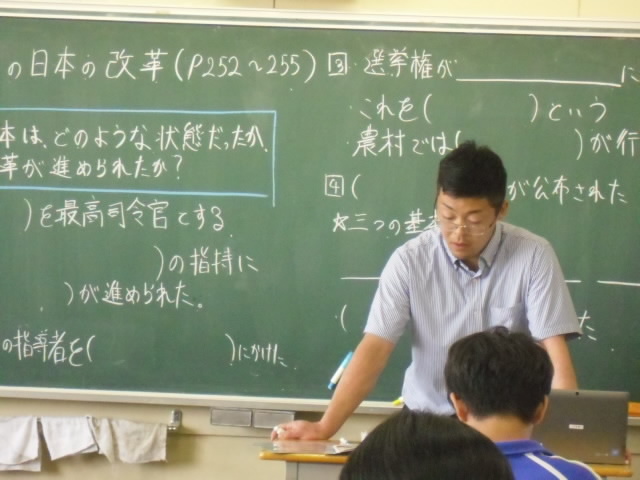 の日本の改革(P252~255)
本は、どのような状態だったか、
革が進められたか?
)を最高司令官とする
)の指持に
)が進められた。
の指導者を(        )にかけた
3 選挙権が____に
これを(        )という
農村では(        )が行
4(        が公布された
☆三つの基
(
た